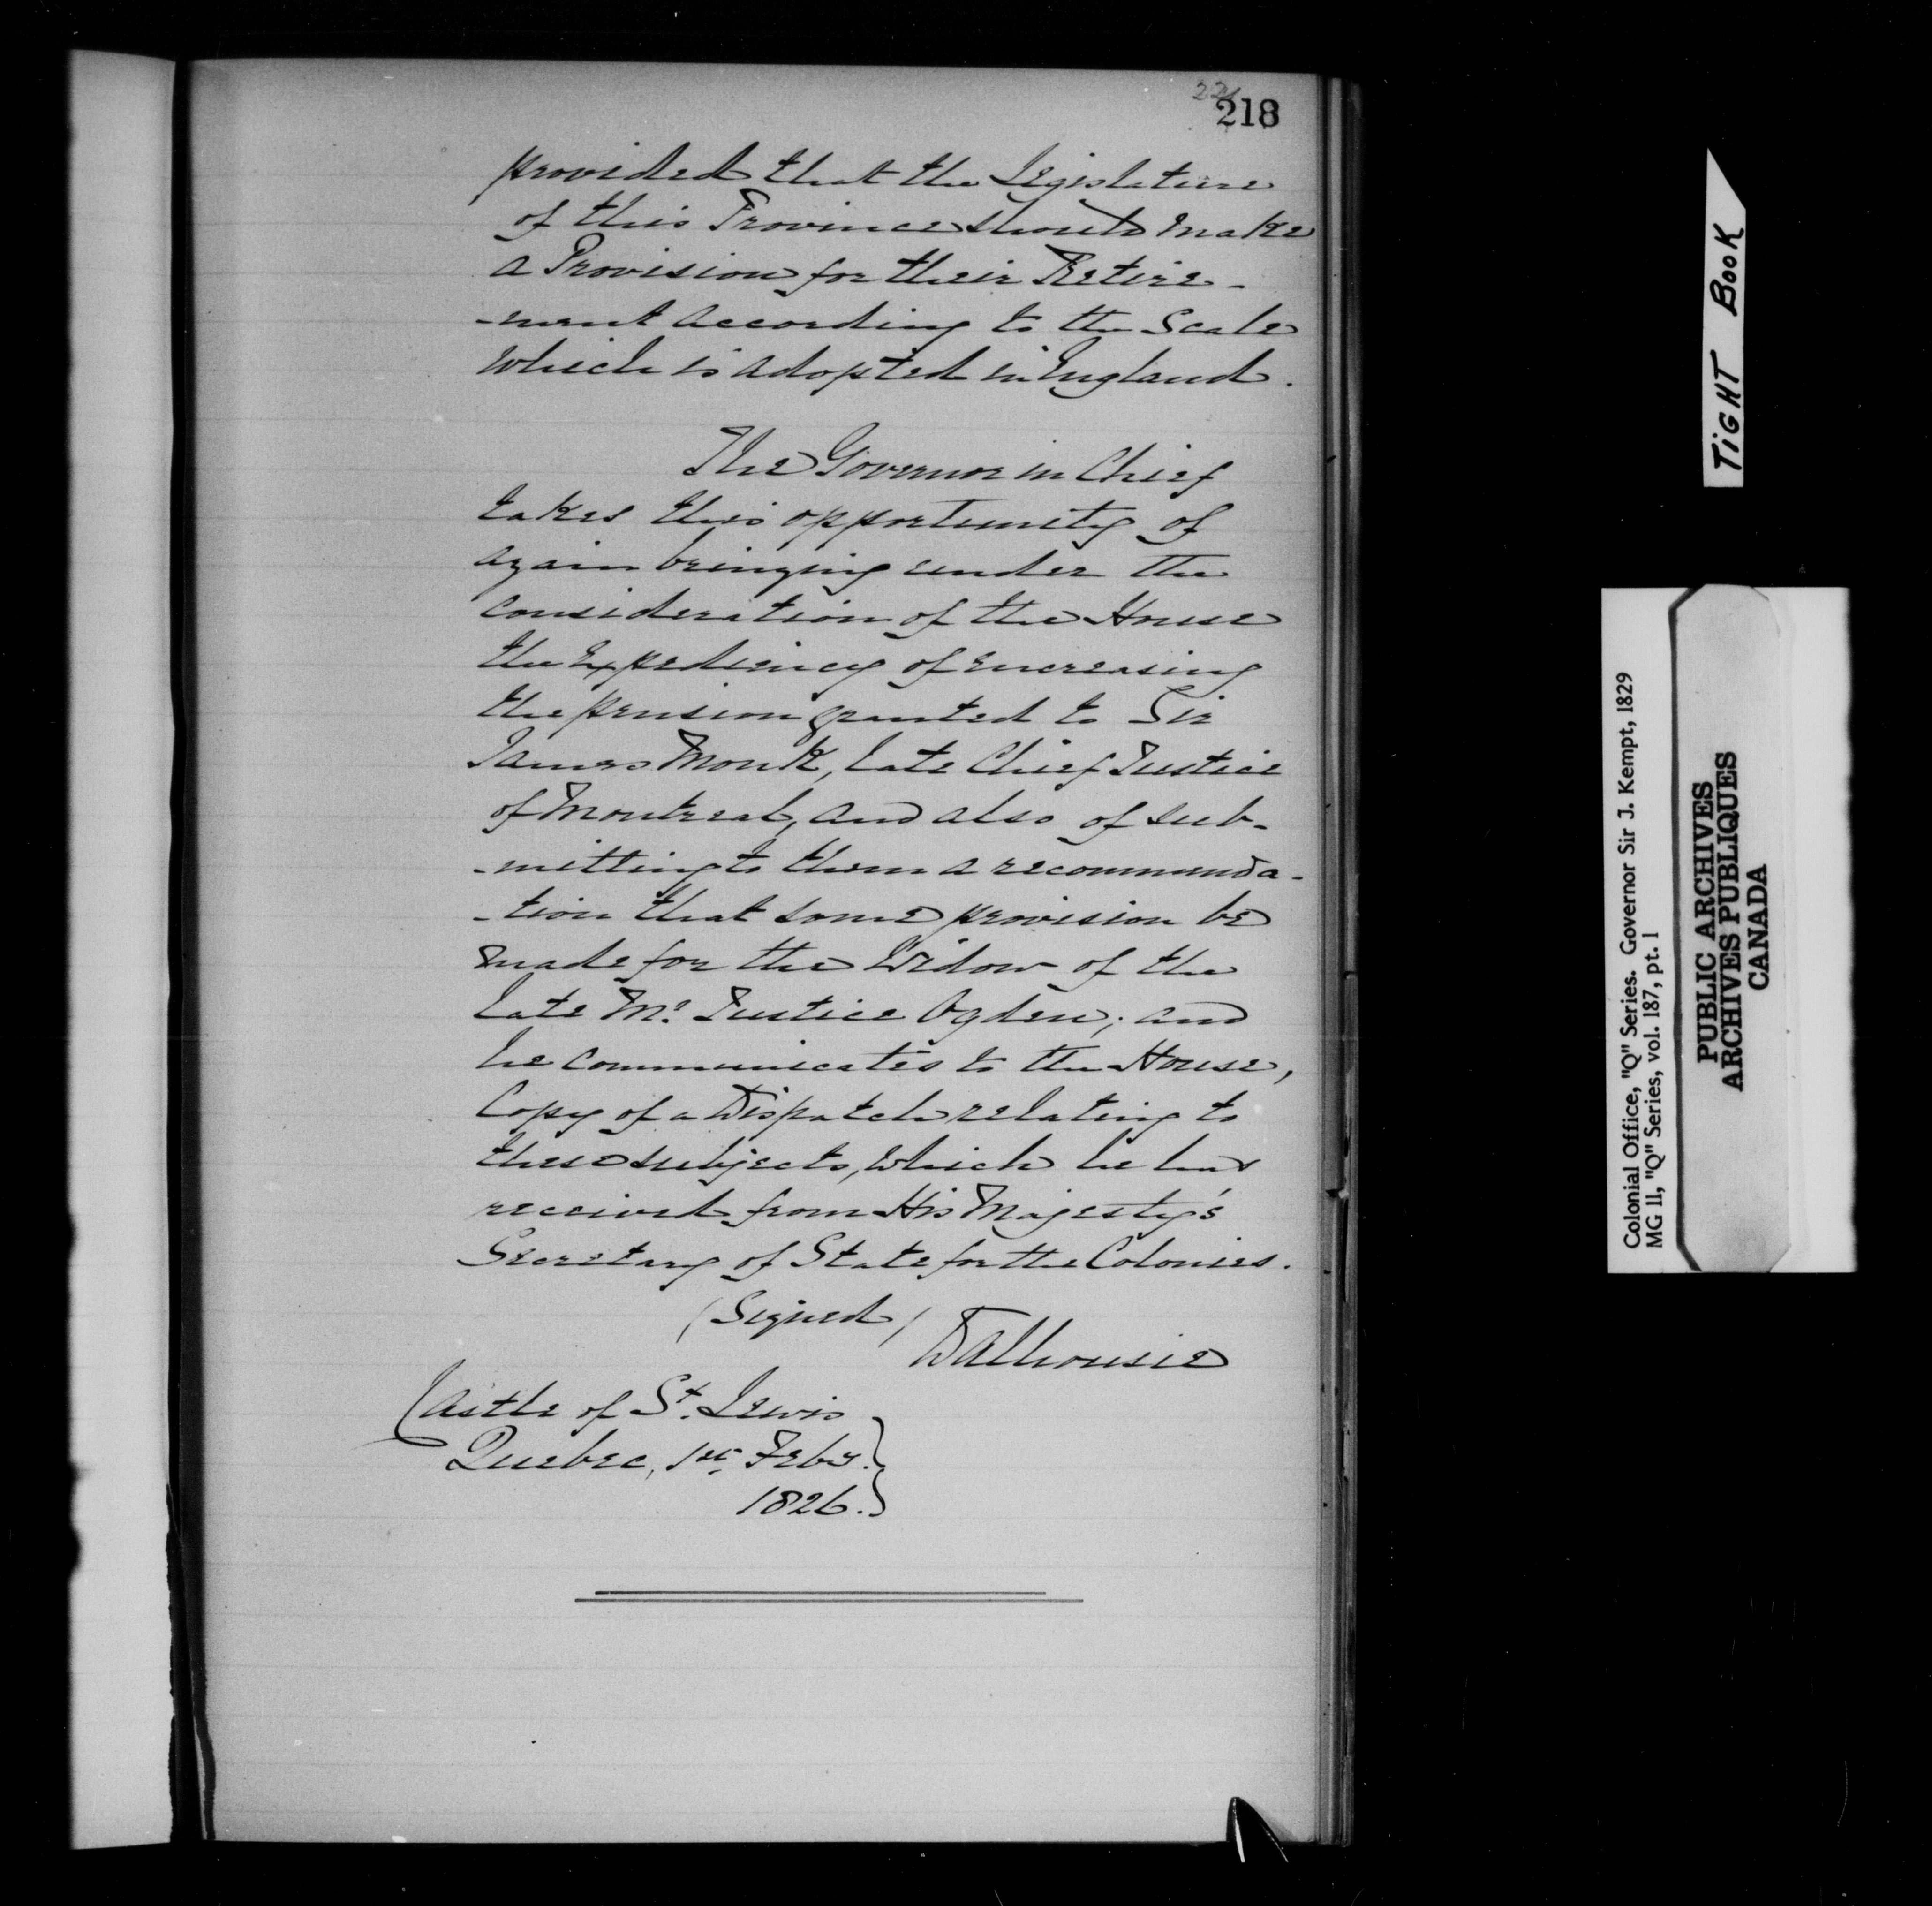 218
provided that the Legislature
of this Province should make
a Provision for their Retire-
-ment according to the Scale
which is adopted in England.
The Governor in Chief
takes this opportunity of
again bringing under the
consideration of the House
the Expediency of encreasing
the pension granted to Sir
James Monk, late Chief Justice
of Montreal, and also of sub-
-mitting to them a recommenda-
-tion that some provision be
made for the Widow of the
late Mr. Justice Ogden; and
he communicates to the House,
Copy of a Dispatch relating to
these subjects, which he has
received from His Majesty's
Secretary of State for the Colonies.
(Signed)
Dalhousie
Castle of St. Lewis
Quebec, 1st Feby.
1826.
TIGHT BOOK
Colonial Office, "Q" Series. Governor Sir J. Kempt, 1829
MG 11, "Q" Series, vol. 187, pt. 1
PUBLIC ARCHIVES
ARCHIVES PUBLIQUES
CANADA